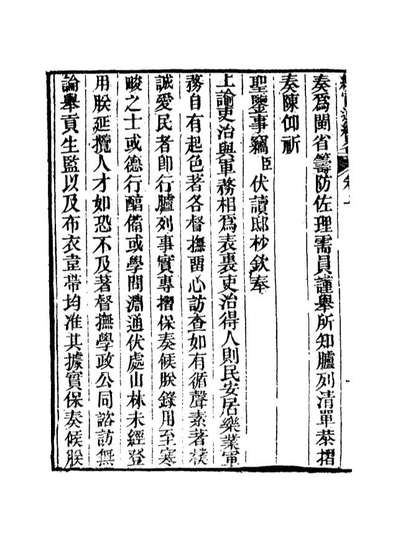 奏爲閩省籌防佐理需員謹舉所知臚列清單恭摺
奏陳仰祈
聖鑒事竊臣伏讀邸抄欽奉
上諭吏治與軍務相爲表裏吏治得人則民安居樂業軍
務自有起色著各督撫畱心訪查如有循聲素著樸
誠愛民者卽行臚列事實專摺保奏候朕錄用至寒
畯之士或德行醕備或學問淵通伏處山林未經登
用朕延攬人才如恐不及著督撫學政公同諮訪無
論舉貢生監以及布衣韋帶均准其據實保奏候朕